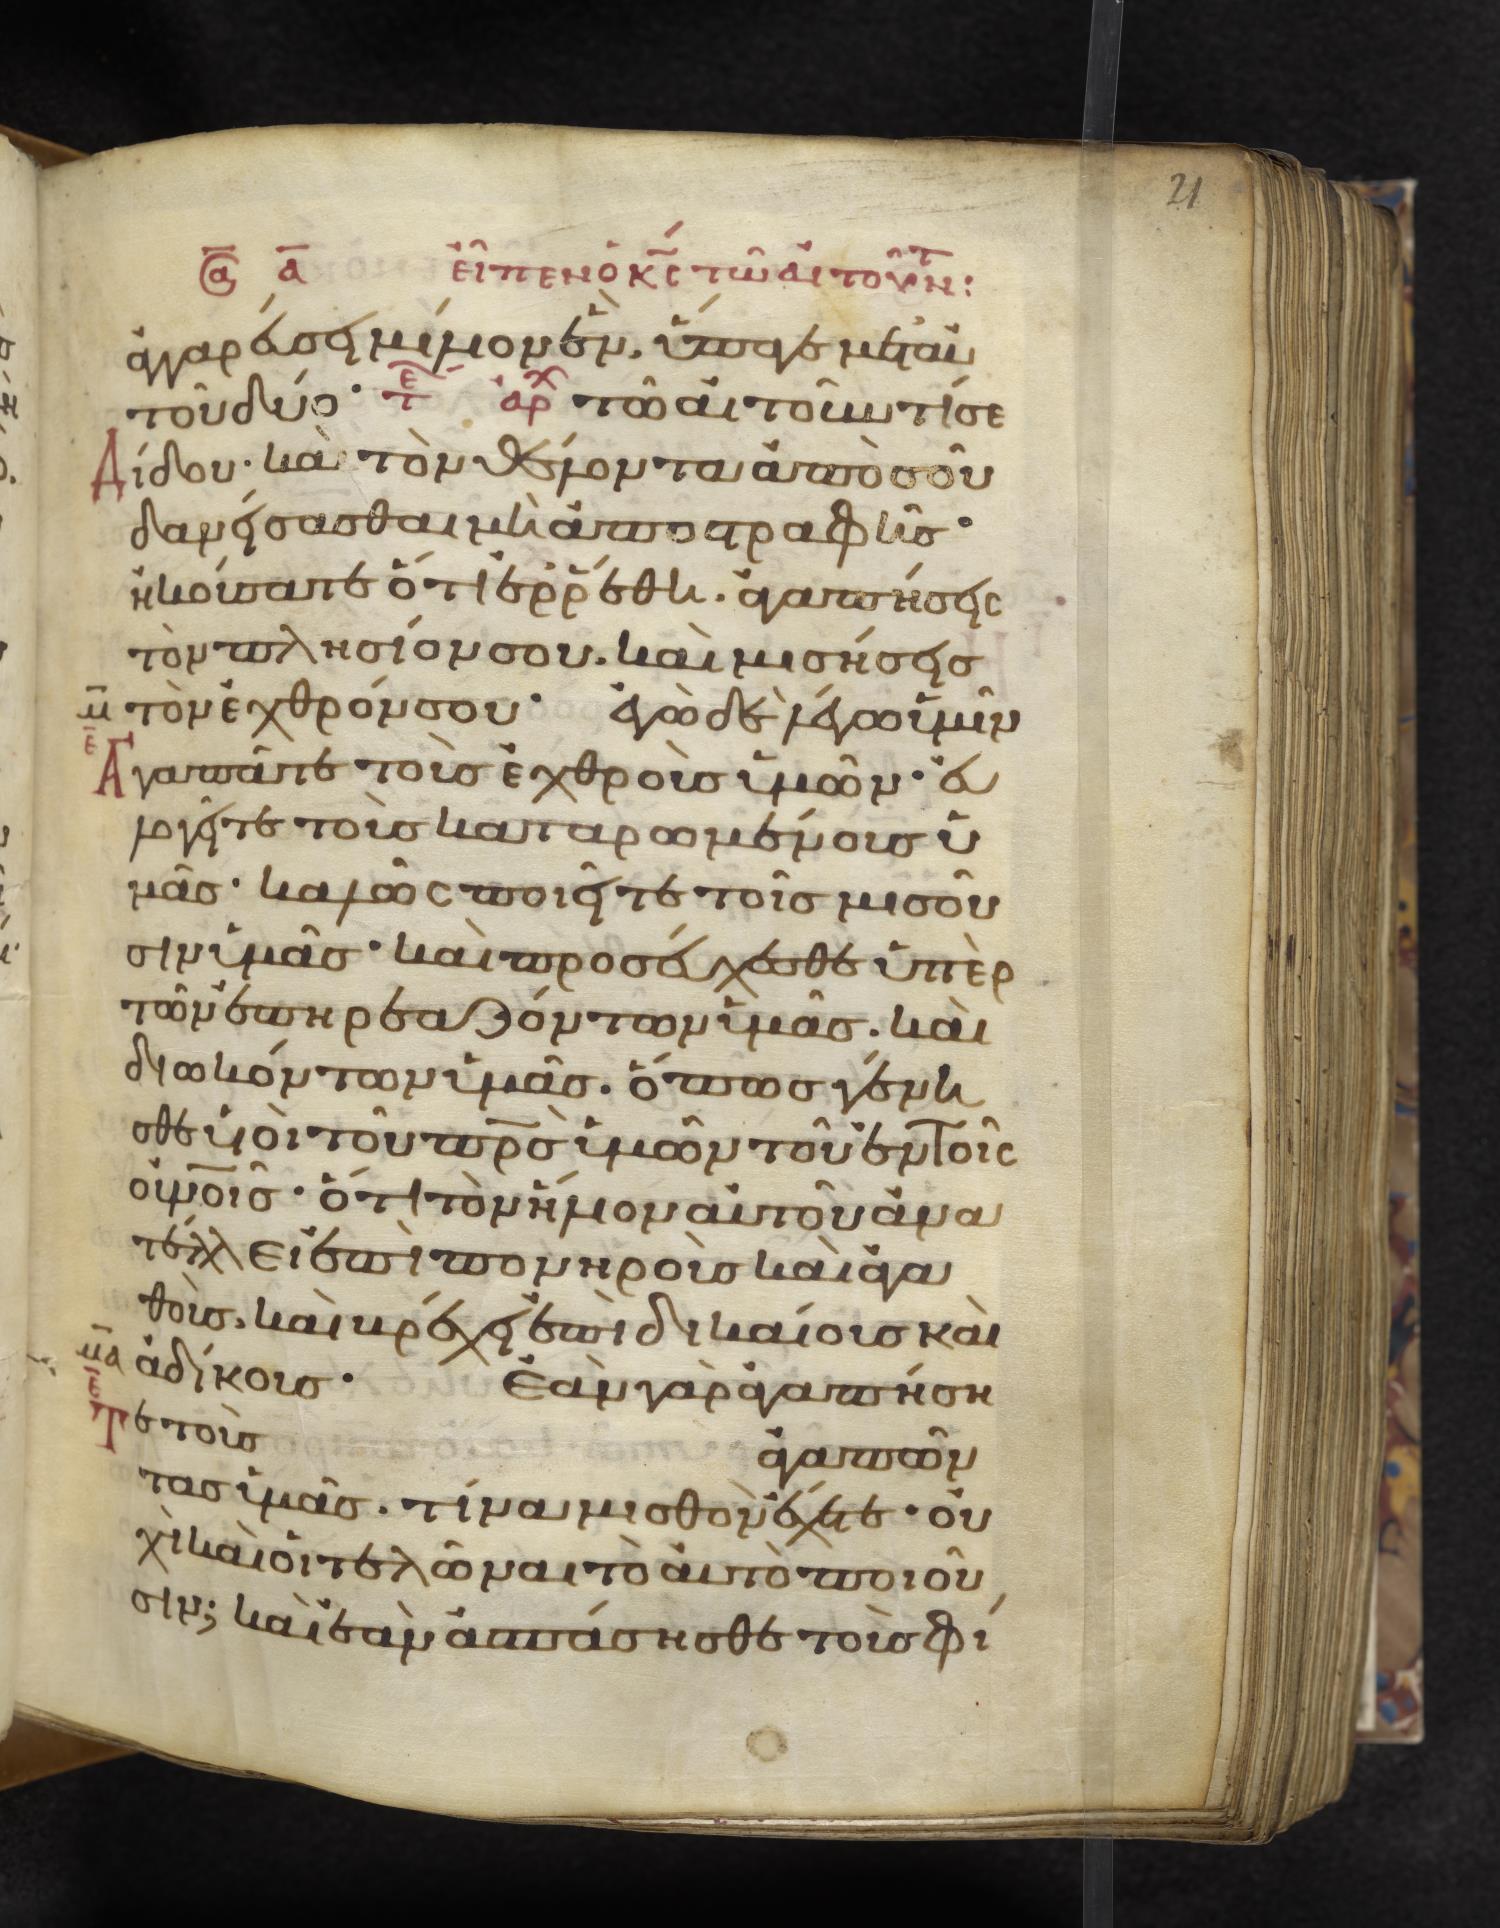 21
ϛα α εἶπεν ὁ κς τῶ αἰτοῦντι:
ἀγγαρεύσει μίλιον ἕν. ὕπαγε μετ' αὐ
τοῦ δύο· τε αρχ τῶ αἰτοῦντί σε
Δίδου· καὶ τὸν θέλοντα ἀπὸ σοῦ
δανείσασθαι μὴ ἀποστραφῆς·
ἠκούσατε ὅτι ἐρρέθη. ἀγαπήσεις
τὸν πλησίον σου. καὶ μισήσεις
μ τὸν ἐχθρόν σου· ἐγὼ δὲ λέγω ὑμῖν
ε Ἀγαπᾶτε τοὺς ἐχθροὺς ὑμῶν· εὐ
λογεῖτε τοὺς καταρωμένους ὑ
μᾶς· καλῶς ποιεῖτε τοῖς μισοῦ
σιν ὑμᾶς· καὶ προσεύχεσθε ὑπὲρ
τῶν ἐπηρεαζόντων ὑμᾶς. καὶ
διωκόντων ὑμᾶς. ὅπως γένη
σθε υἱοὶ τοῦ πρς ὑμῶν τοῦ ἐν τοῖς
οὐνοις· ὅτι τὸν ἥλιον αὐτοῦ ἀνα
τέλλει ἐπὶ πονηροὺς καὶ ἀγα
θοὺς. καὶ βρέχει ἐπὶ δικαίους καὶ
μα ἀδίκους· Ἐὰν γὰρ ἀγαπήση
ε Τε τοὺς ἀγαπῶν
τας ὑμᾶς. τίνα μισθὸν ἔχετε· οὐ
χὶ καὶ οἱ τελῶναι τὸ αὐτὸ ποιοῦ
σιν; καὶ ἐὰν ἀσπάσησθε τοὺς φί